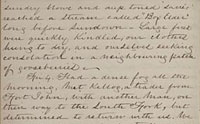 sunday shows and sup toned skies
reached a stream, called "Boyleu"
long before sundown. Large fire
was quickly kindled, our clothes
hung to dry, and ourselves seeking
consolation in a neighbouring patch
of gooseberries.
Fri. 4. Had a dense fog all the
morning, that Kellog, a trader from
Fort John, with another man, on
their way to the South Fork, but
determined to return with us. We